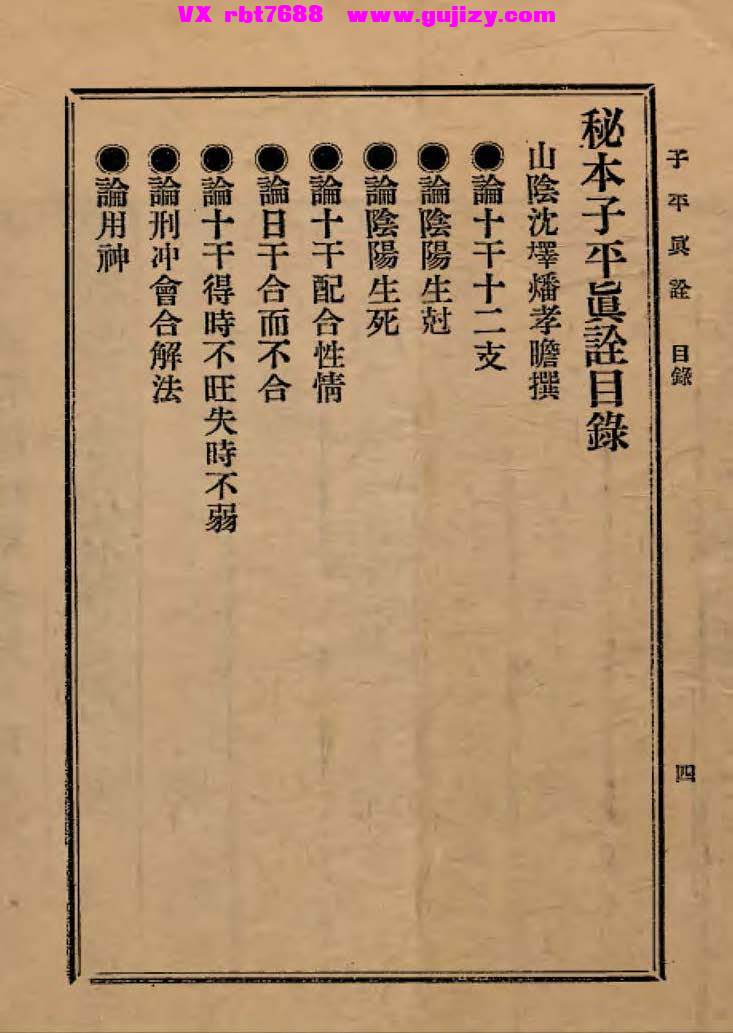 VX rbt7688 www.gujizy.com
子平眞詮 目錄
四
秘本子平眞詮目錄
山陰沈墿燔孝瞻撰
●論十干十二支
●論陰陽生尅
●論陰陽生死
●論十干配合性情
●論日干合而不合
●論十干得時不旺失時不弱
●論刑冲會合解法
●論用神